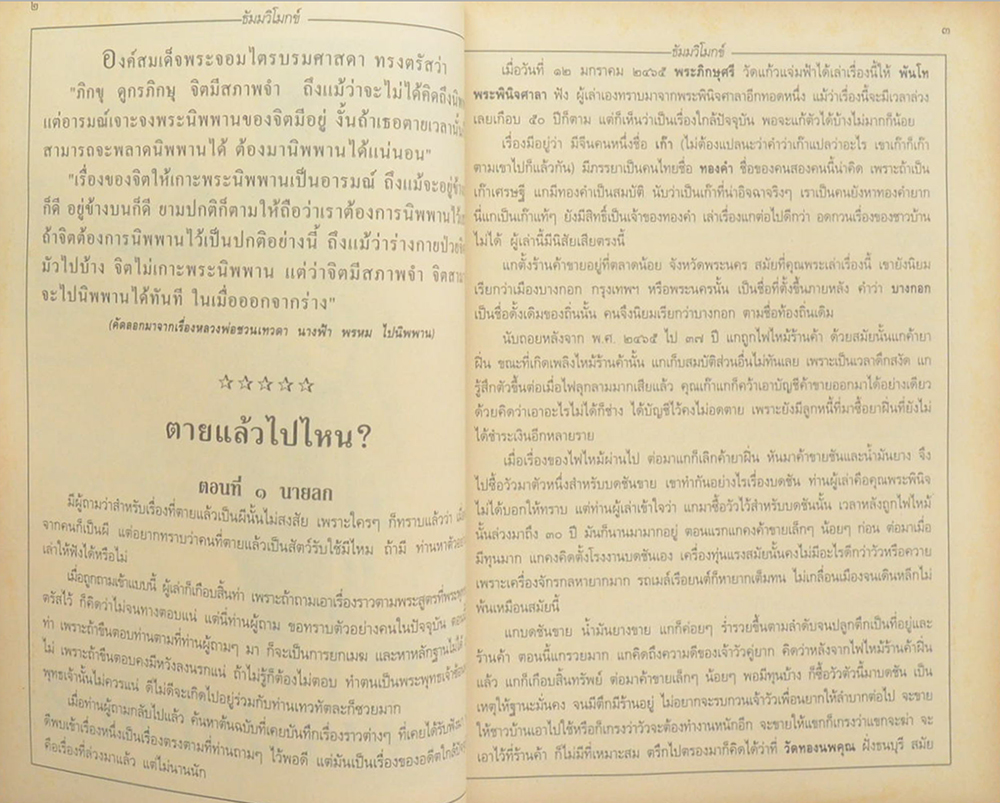 ๒
ธัมมวิโมกข์
องค์สมเด็จพระจอมไตรบรมศาสดา ทรงตรัสว่า
"ภิกขุ ดูกรภิกษุ จิตมีสภาพจำ ถึงแม้ว่าจะไม่ได้คิดถึงนิพ
แต่อารมณ์เจาะจงพระนิพพานของจิตมีอยู่ งั้นถ้าเธอตายเวลานั้น
สามารถจะพลาดนิพพานได้ ต้องมานิพพานได้แน่นอน"
"เรื่องของจิตให้เกาะพระนิพพานเป็นอารมณ์ ถึงแม้จะอยู่ข้าง
ก็ดี อยู่ข้างบนก็ดี ยามปกติก็ตามให้ถือว่าเราต้องการนิพพานไว้
ถ้าจิตต้องการนิพพานไว้เป็นปกติอย่างนี้ ถึงแม้ว่าร่างกายป่วย
มัวไปบ้าง จิตไม่เกาะพระนิพพาน แต่ว่าจิตมีสภาพจำ จิตสา
จะไปนิพพานได้ทันที ในเมื่อออกจากร่าง"
(คัดลอกมาจากเรื่องหลวงพ่อชวนเทวดา นางฟ้า พรหม ไปนิพพาน)
☆☆☆☆☆
ตายแล้วไปไหน?
ตอนที่ ๑ นายลก
มีผู้ถามว่าสำหรับเรื่องที่ตายแล้วเป็นผีนั้นไม่สงสัย เพราะใครๆ ก็ทราบแล้วว่า
จากคนก็เป็นผี แต่อยากทราบว่าคนที่ตายแล้วเป็นสัตว์รับใช้มีไหม ถ้ามี ท่านหาตัวอย่าง
เล่าให้ฟังได้หรือไม่
เมื่อถูกถามเข้าแบบนี้ ผู้เล่าก็เกือบสิ้นท่า เพราะถ้าถามเอาเรื่องราวตามพระสูตรที่
ตรัสไว้ ก็คิดว่าไม่จนทางตอบแน่ แต่นี่ท่านผู้ถาม ขอทราบตัวอย่างคนในปัจจุบัน
ท่า เพราะถ้าขืนตอบท่านตามที่ท่านผู้ถามๆ มา ก็จะเป็นการยกเมฆ และหาหลักฐานไม่ได้
ไม่ เพราะถ้าขืนตอบคงมีหวังลงนรกแน่ ถ้าไม่รู้ก็ต้องไม่ตอบ ทำตนเป็นพระพุทธเจ้า
พุทธเจ้านั้นไม่ควรแน่ ดีไม่ดีจะเกิดไปอยู่ร่วมกับท่านเทวทัตละก็ซวยมาก
เมื่อท่านผู้ถามกลับไปแล้ว ค้นหาต้นฉบับที่เคยบันทึกเรื่องราวต่างๆ ที่เคยได้รับฟัง
ดีพบเข้าเรื่องหนึ่งเป็นเรื่องตรงตามที่ท่านถามๆ ไว้พอดี แต่มันเป็นเรื่องของอดีตใกล้
คือเรื่องที่ล่วงมาแล้ว แต่ไม่นานนัก
๓
ธัมมวิโมกข์
เมื่อวันที่ ๑๒ มกราคม ๒๔๖๕ พระภิกษุศรี วัดแก้วแจ่มฟ้าได้เล่าเรื่องนี้ให้ พันโท
พระพินิจศาลา ฟัง ผู้เล่าเองทราบมาจากพระพินิจศาลาอีกทอดหนึ่ง แม้ว่าเรื่องนี้จะมีเวลาล่วง
เลยเกือบ ๕๐ ปีก็ตาม แต่ก็เห็นว่าเป็นเรื่องใกล้ปัจจุบัน พอจะแก้ตัวได้บ้างไม่มากก็น้อย
เรื่องมีอยู่ว่า มีจีนคนหนึ่งชื่อ เก๊า (ไม่ต้องแปลนะว่าคำว่าเก๊าแปลว่าอะไร เขาเก๊าก็เก๊า
ตามเขาไปก็แล้วกัน) มีภรรยาเป็นคนไทยชื่อ ทองคำ ชื่อของคนสองคนนี้น่าคิด เพราะถ้าเป็น
เก๊าเศรษฐี แกมีทองคำเป็นสมบัติ นับว่าเป็นเก๊าที่น่าอิจฉาจริงๆ เราเป็นคนยังหาทองคำยาก
นี่แกเป็นเก๊าแท้ๆ ยังมีสิทธิ์เป็นเจ้าของทองคำ เล่าเรื่องแกต่อไปดีกว่า อดกวนเรื่องของชาวบ้าน
ไม่ได้ ผู้เล่านี้มีนิสัยเสียตรงนี้
แกตั้งร้านค้าขายอยู่ที่ตลาดน้อย จังหวัดพระนคร สมัยที่คุณพระเล่าเรื่องนี้ เขายังนิยม
เรียกกว่าเมืองบางกอก กรุงเทพฯ หรือพระนครนั้น เป็นชื่อที่ตั้งขึ้นภายหลัง คำว่า บางกอก
เป็นชื่อดั้งเดิมของถิ่นนั้น คนจึงนิยมเรียกว่าบางกอก ตามชื่อท้องถิ่นเดิม
นับถอยหลังจาก พ.ศ. ๒๔๖๕ ไป ๓๗ ปี แกถูกไฟไหม้ร้านค้า ด้วยสมัยนั้นแกค้ายา
ฝิ่น ขณะที่เกิดเพลิงไหม้ร้านค้านั้น แกเก็บสมบัติส่วนอื่นไม่ทันเลย เพราะเป็นเวลาดึกสงัด แก
รู้สึกตัวขึ้นต่อเมื่อไฟลุกลามมากเสียแล้ว คุณเก๊าแกก็คว้าเอาบัญชีค้าขายออกมาได้อย่างเดียว
ด้วยคิดว่าเอาอะไรไม่ได้ก็ช่าง ได้บัญชีไว้คงไม่อดตาย เพราะยังมีลูกหนี้ที่มาซื้อยาฝิ่นที่ยังไม่
ได้ชำระเงินอีกหลายราย
เมื่อเรื่องของไฟไหม้ผ่านไป ต่อมาแกก็เลิกค้ายาฝิ่น หันมาค้าขายชันและน้ำมันยาง จึง
ไปซื้อวัวมาตัวหนึ่งสำหรับบดชันขาย เขาทำกันอย่างไรเรื่องบดชัน ท่านผู้เล่าคือคุณพระพินิจ
ไม่ได้บอกให้ทราบ แต่ท่านผู้เล่าเข้าใจว่า แกมาซื้อวัวไว้สำหรับบดชันนั้น เวลาหลังถูกไฟไหม้
นั้นล่วงมาถึง ๓๐ ปี มันก็นานมากอยู่ ตอนแรกแกคงค้าขายเล็กๆ น้อยๆ ก่อน ต่อมาเมื่อ
มีทุนมาก แกคงคิดตั้งโรงงานบดชันเอง เครื่องทุ่นแรงสมัยนั้นคงไม่มีอะไรดีกว่าวัวหรือควาย
เพราะเครื่องจักรกลหายากมาก รถเมล์เรือยนต์ก็หายากเต็มทน ไม่เกลื่อนเมืองจนเดินหลีกไม่
พ้นเหมือนสมัยนี้
แกบดชันขาย น้ำมันยางขาย แกก็ค่อยๆ ร่ำรวยขึ้นตามลำดับจนปลูกตึกเป็นที่อยู่และ
ร้านค้า ตอนนี้แกรวยมาก แกคิดถึงความดีของเจ้าวัวคู่ยาก คิดว่าหลังจากไฟไหม้ร้านค้าฝิ่น
แล้ว แกก็เกือบสิ้นทรัพย์ ต่อมาค้าขายเล็กๆ น้อยๆ พอมีทุนบ้าง ก็ซื้อวัวตัวนี้มาบดชัน เป็น
เหตุให้ฐานะมั่นคง จนมีตึกมีร้านอยู่ ไม่อยากจะรบกวนเจ้าวัวเพื่อนยากให้ลำบากต่อไป จะขาย
ให้ชาวบ้านเอาไปใช้หรือก็เกรงว่าวัวจะต้องทำงานหนักอีก จะขายให้แขกก็เกรงว่าแขกจะฆ่า จะ
เอาไว้ที่ร้านค้า ก็ไม่มีที่เหมาะสม ตรึกไปตรองมาก็คิดได้ว่าที่ วัดทองนพคุณ ฝั่งธนบุรี สมัย